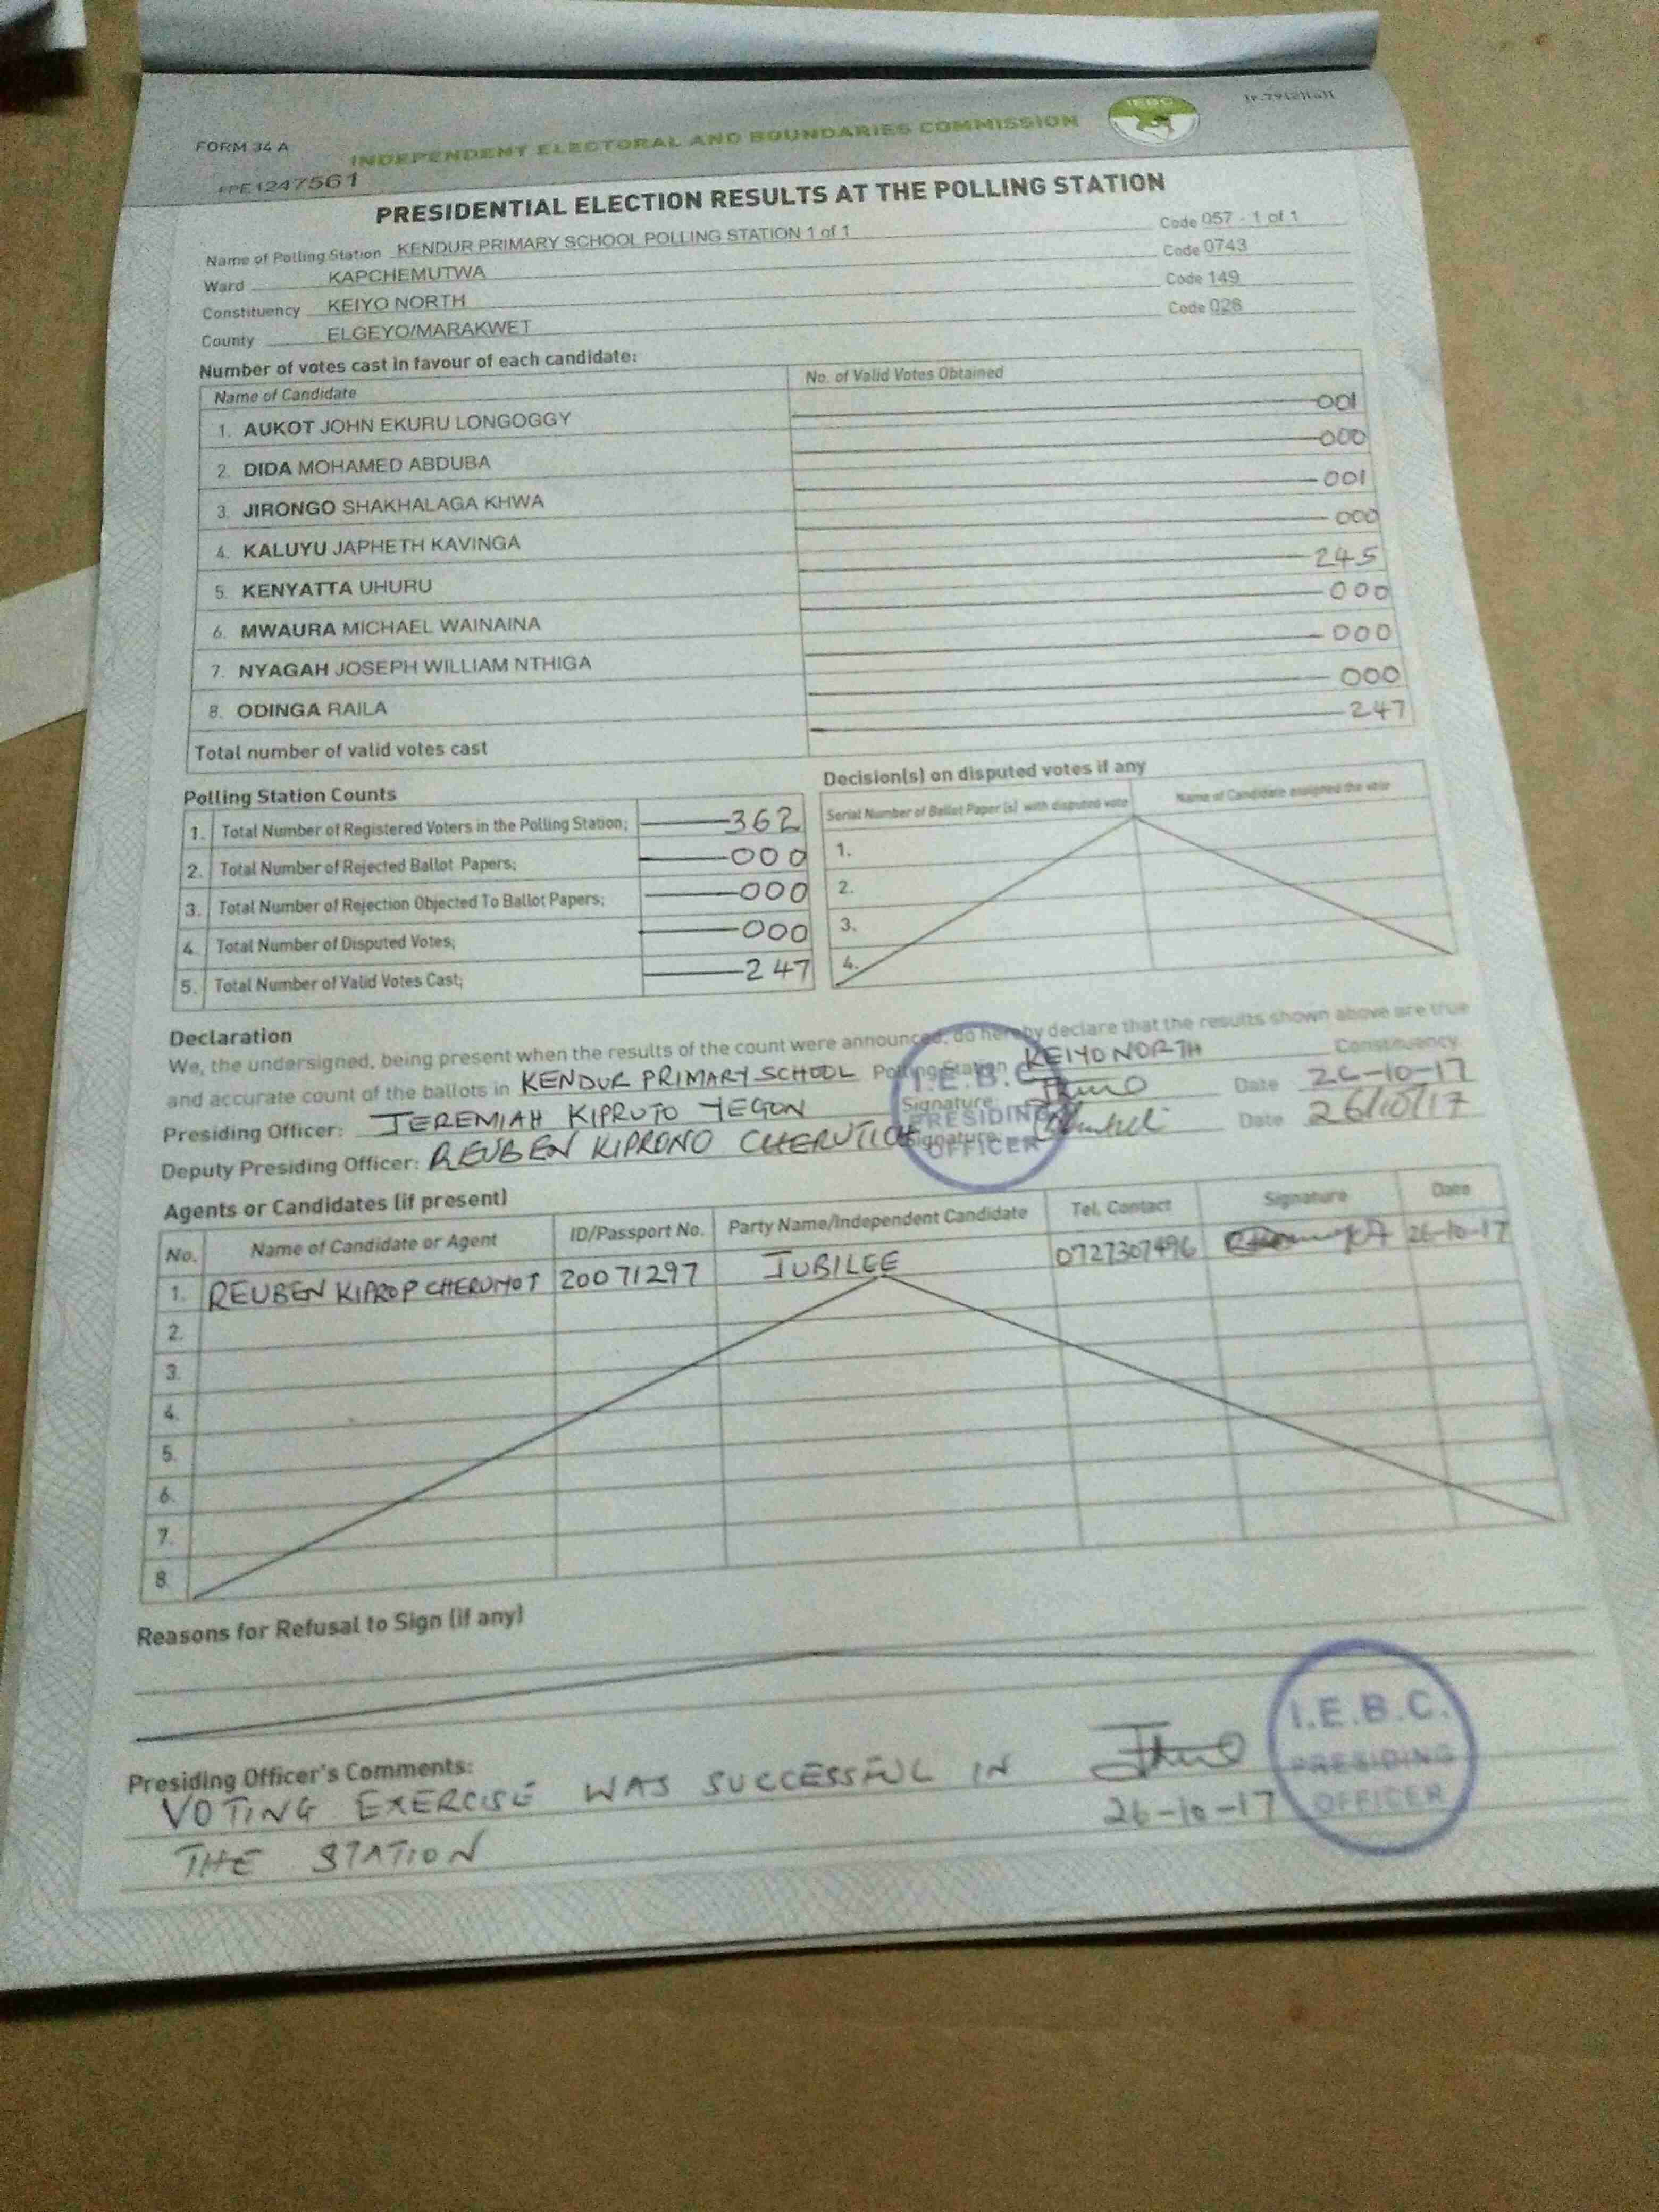 FORM 34 A
INDEPENDENT ELECTORAL AND BOUNDARIES COMMISSION
IEBC
1247561
PRESIDENTIAL ELECTION RESULTS AT THE POLLING STATION
Name of Polling Station KENDUR PRIMARY SCHOOL POLLING STATION 1 of 1 Code 057 - 1 of 1
Ward KAPCHEMUTWA Code 0743
Constituency KEIYO NORTH Code 149
County ELGEYO/MARAKWET Code 028
Number of votes cast in favour of each candidate:
Name of Candidate No. of Valid Votes Obtained
1. AUKOT JOHN EKURU LONGOGGY 001
2. DIDA MOHAMED ABDUBA 000
3. JIRONGO SHAKHALAGA KHWA 001
4. KALUYU JAPHETH KAVINGA 000
5. KENYATTA UHURU 245
6. MWAURA MICHAEL WAINAINA 000
7. NYAGAH JOSEPH WILLIAM NTHIGA 000
8. ODINGA RAILA 000
Total number of valid votes cast 247
Polling Station Counts
1. Total Number of Registered Voters in the Polling Station; 362
2. Total Number of Rejected Ballot Papers; 000
3. Total Number of Rejection Objected To Ballot Papers; 000
4. Total Number of Disputed Votes; 000
5. Total Number of Valid Votes Cast; 247
Decision(s) on disputed votes if any
Serial Number of Ballot Paper (s) with disputed vote Name of Candidate assigned the vote
1.
2.
3.
4.
Declaration
We, the undersigned, being present when the results of the count were announced, do hereby declare that the results shown above are true
and accurate count of the ballots in KENDUR PRIMARY SCHOOL Polling Station KEIYO NORTH Constituency.
Presiding Officer: JEREMIAH KIPRUTO YEGON Signature: Date 26-10-17
Deputy Presiding Officer: REUBEN KIPRONO CHERUTICH Signature: Date 26/10/17
I.E.B.C.
PRESIDING
OFFICER
Agents or Candidates (if present)
No. Name of Candidate or Agent ID/Passport No. Party Name/Independent Candidate Tel. Contact Signature Date
1. REUBEN KIPROP 20071297 JUBILEE 0727307496 26-10-17
2.
3.
4.
5.
6.
7.
8.
Reasons for Refusal to Sign (if any)
Presiding Officer's Comments:
VOTING EXERCISE WAS SUCCESSFUL IN
THE STATION
26-10-17
I.E.B.C.
PRESIDING
OFFICER